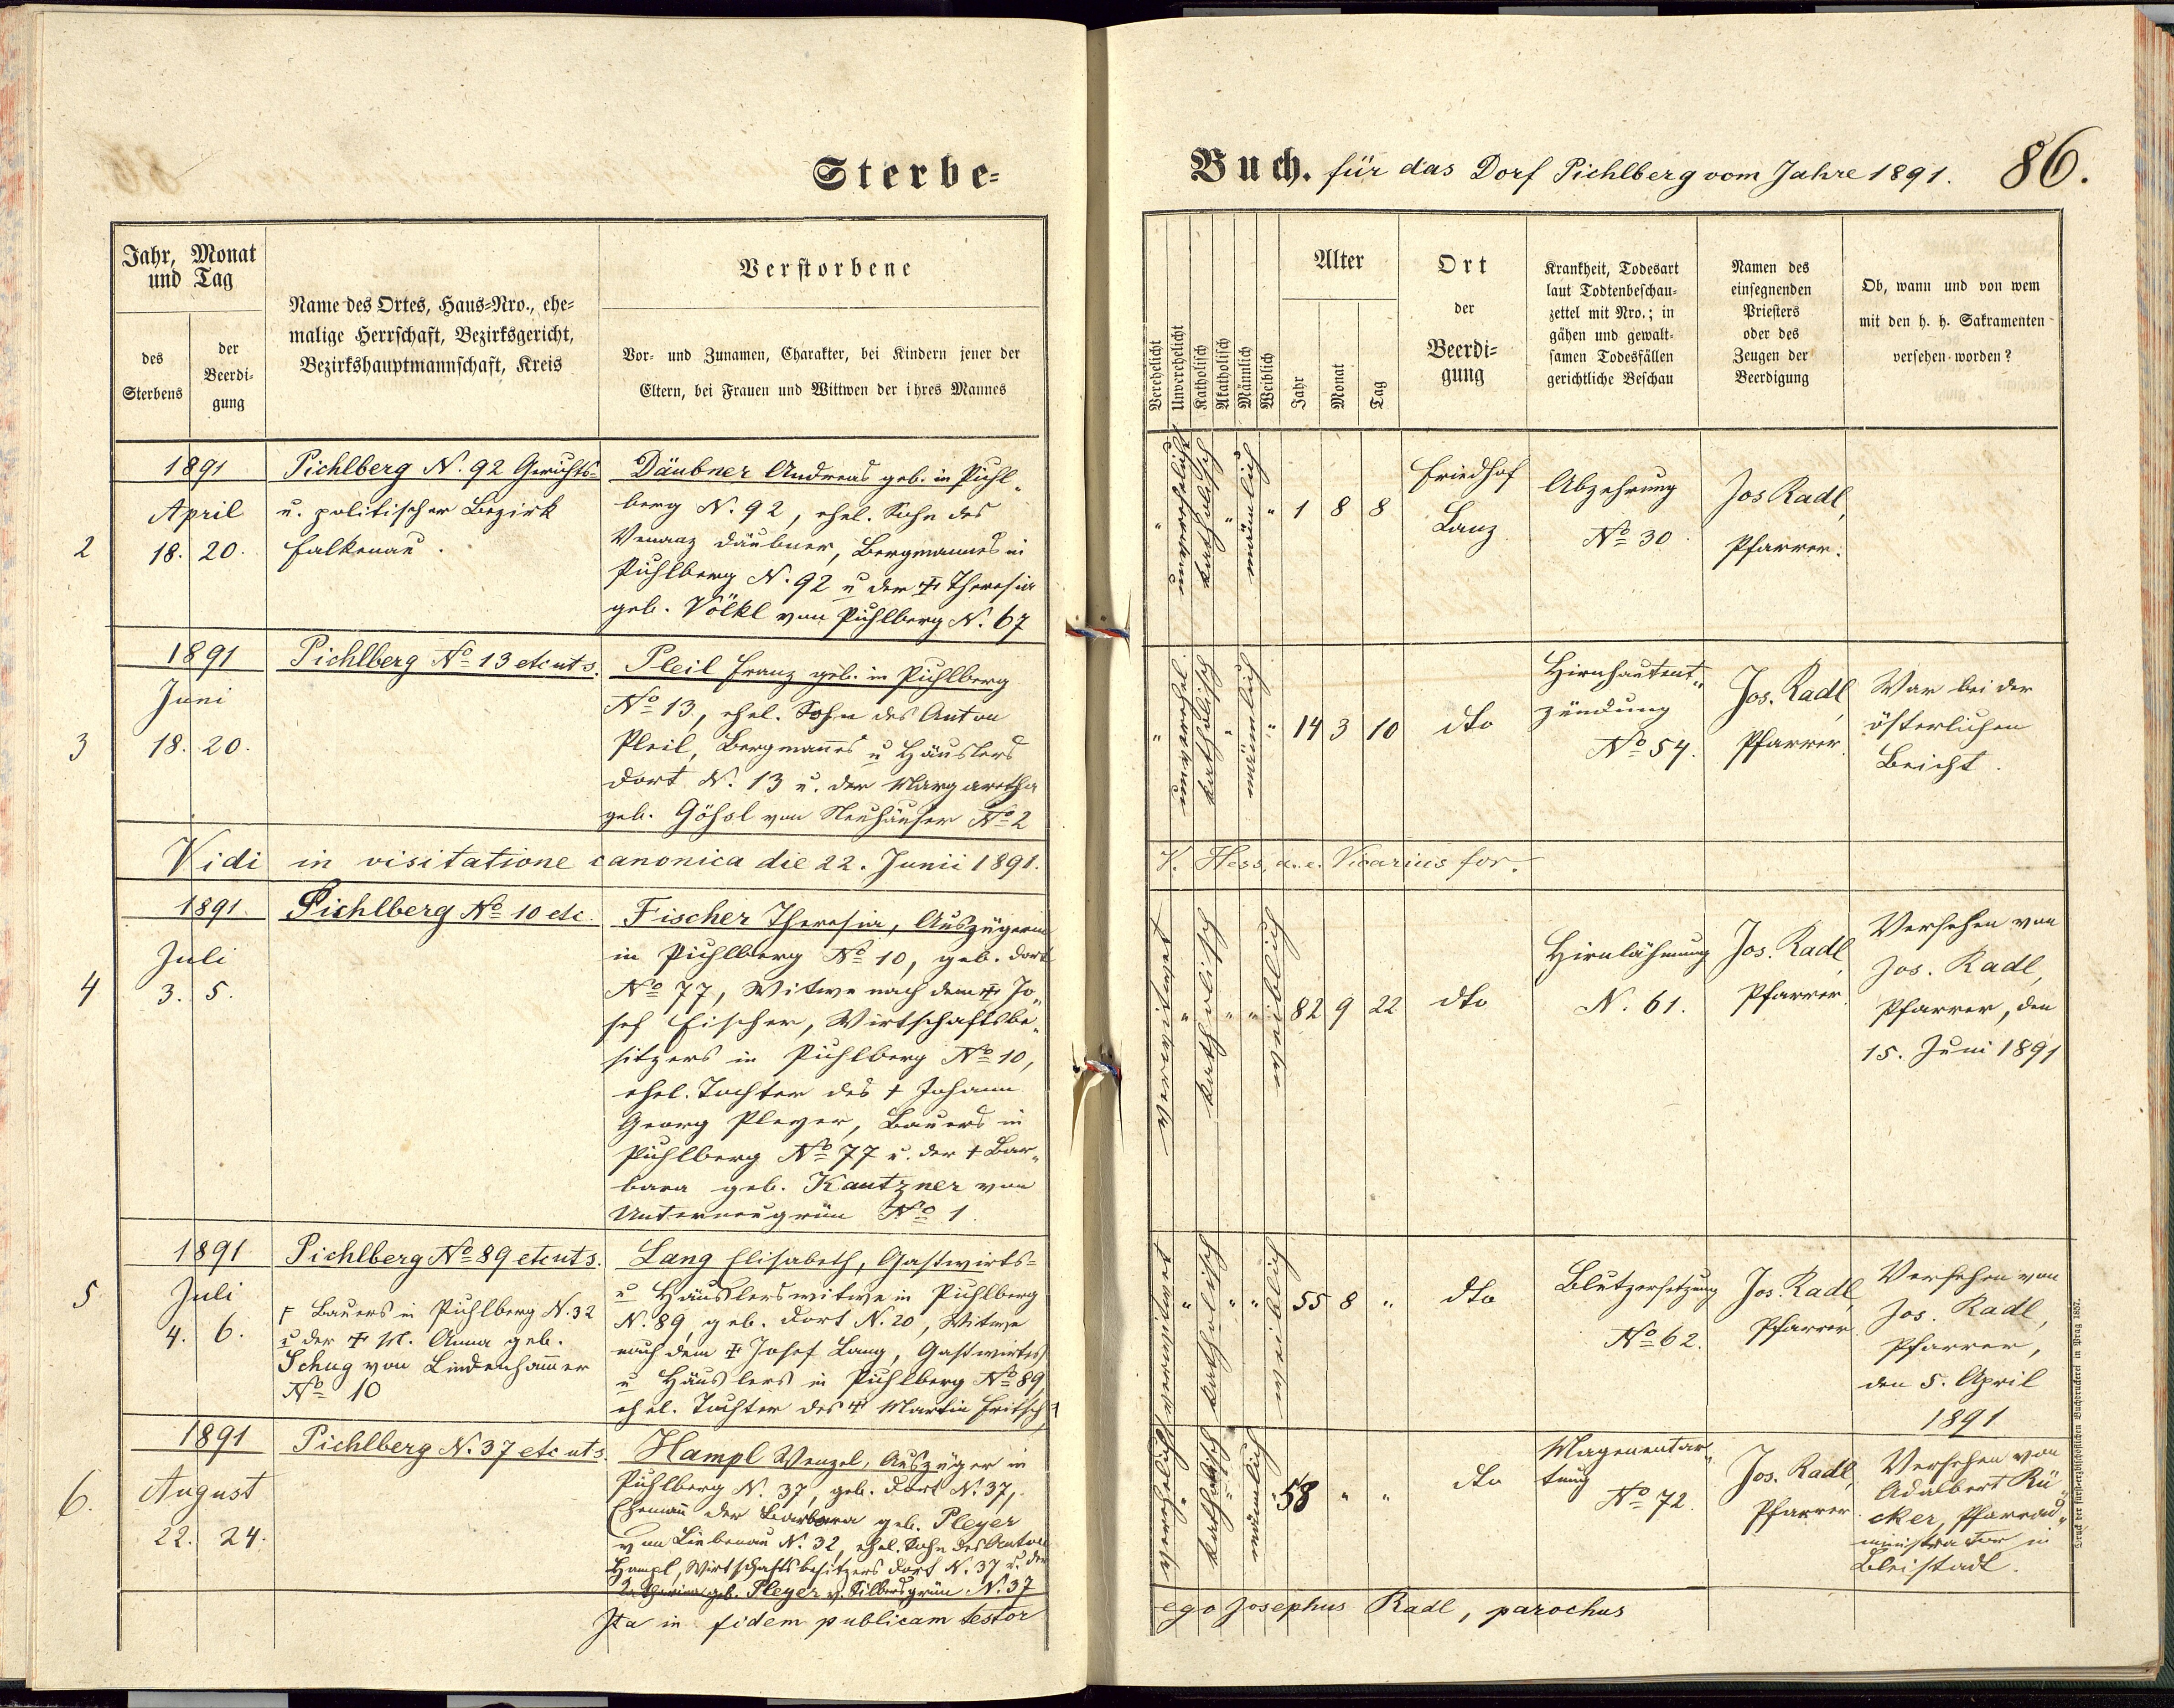 Sterbe-
Buch. für das Dorf Pichlberg vom Jahre 1891. 86.
Jahr, Monat
und Tag
des
Sterbens
der
Beerdi-
gung
Name des Ortes, Haus-Nro., ehe-
malige Herrschaft, Bezirksgericht,
Bezirkshauptmannschaft, Kreis
Verstorbene
Vor- und Zunamen, Charakter, bei Kindern jener der
Eltern, bei Frauen und Wittwen der ihres Mannes
Verehelicht
Unverehelicht
Katholisch
Akatholisch
Männlich
Weiblich
Alter
Jahr
Monat
Tag
Ort
der
Beerdi-
gung
Krankheit, Todesart
laut Todtenbeschau-
zettel mit Nro.; in
gähen und gewalt-
samen Todesfällen
gerichtliche Beschau
Namen des
einsegnenden
Priesters
oder des
Zeugen der
Beerdigung
Ob, wann und von wem
mit den h. h. Sakramenten
versehen worden?
2
1891
April
18. 20.
Pichlberg N. 92 Gerichts-
u. politischer Bezirk
Falkenau.
Däubner Andreas geb. in Pichl-
berg N. 92, ehel. Sohn des
Venanz Däubner, Bergmannes in
Pichlberg N. 92 u der ‡ Theresia
geb. Völkl von Pichlberg N. 67
" unverehelicht katholisch " männlich " 1 8 8
Friedhof
Lanz
Abzehrung
No 30.
Jos Radl,
Pfarrer.
3
1891
Juni
18. 20.
Pichlberg No 13 etc uts.
Pleil Franz geb. in Pichlberg
No 13, ehel. Sohn des Anton
Pleil, Bergmanns u Häuslers
dort N. 13 u. der Margaretha
geb. Gößl von Neuhäuser No 2
" unverehel. katholisch " männlich " 14 3 10
dto
Hirnhautent-
zündung
No 54.
Jos. Radl,
Pfarrer.
War bei der
österlichen
Beicht.
Vidi in visitatione canonica die 22. Junii 1891.
K. Hess, a. e. Vicarius for.
4
1891.
Juli
3. 5.
Pichlberg No 10 etc.
Fischer Theresia, Auszügerin
in Pichlberg No 10, geb. dort
No 77, Witwe nach dem ‡ Jo-
sef Fischer, Wirtschaftsbe-
sitzers in Pichlberg No 10,
ehel. Tochter des † Johann
Georg Pleyer, Bauers in
Pichlberg No 77 u. der † Bar-
bara geb. Kautzner von
Unterneugrün No 1.
verwitwet " katholisch " " weiblich 82 9 22
dto
Hirnlähmung
N. 61.
Jos. Radl,
Pfarrer.
Versehen von
Jos. Radl,
Pfarrer, den
15. Juni 1891
5
1891
Juli
4. 6.
Pichlberg No 89 etc uts.
Lang Elisabeth, Gastwirts-
u Häuslerswitwe in Pichlberg
N. 89, geb. dort N. 20, Witwe
nach dem ‡ Josef Lang, Gastwirtes
u Häuslers in Pichlberg No 89,
ehel. Tochter des ‡ Martin Fritsch,
Bauers in Pichlberg N. 32
u der ‡ M. Anna geb.
Schug von Lindenhammer
No 10
verwitwet " katholisch " " weiblich 55 8 "
dto
Blutzersetzung
No 62.
Jos. Radl,
Pfarrer.
Versehen von
Jos. Radl,
Pfarrer,
den 5. April
1891
6.
1891
August
22. 24.
Pichlberg N. 37 etc uts.
Hampl Wenzel, Auszüger in
Pichlberg N. 37, geb. dort N. 37,
Ehemann der Barbara geb. Pleyer
von Liebenau N. 32, ehel. Sohn des Anton
Hampl, Wirtschaftsbesitzers dort N. 37 u. der
Katharina geb. Pleyer v. Silbersgrün N. 37
verehelicht " katholisch " männlich " 58 " "
dto
Magenentar-
tung
No 72.
Jos. Radl,
Pfarrer.
Versehen von
Adalbert Rü-
cker, Pfarrad-
ministrator in
Bleistadt.
Ita in fidem publicam testor
ego Josephus Radl, parochus
Druck der fürst-erzbischöflichen Buchdruckerei in Prag 1857.